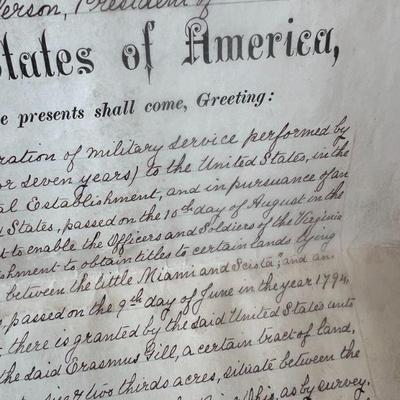 ferson, President of
States of America,
e presents shall come, Greeting:
ration of military service performed by
or seven years) to the United States, in the
al Establishment, and in pursuance of an
d States, passed on the 10th day of August in the
ct to enable the Officers and Soldiers of the Virginia
ishment to obtain titles to certain lands lying
between the little Miami and Sciota," and an
, passed on the 9th day of June in the year 1794,
there is granted by the said United States unto
the said Erasmus Gill, a certain tract of land,
two thirds acres, situate between the
Ohio, as by survey,